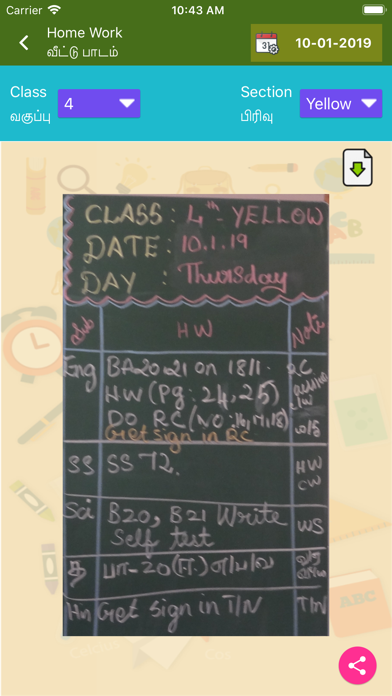 Carrier 10:43 AM
Home Work
வீட்டு பாடம்
31 10-01-2019
Class Section
வகுப்பு 4 பிரிவு Yellow
CLASS : 4th YELLOW
DATE : 10.1.19
DAY : Thursday
Sub HW Note
Eng BA20,21 on 18/1. RC
HW (Pg: 24, 25)
DO RC (NO: 16,17,18)
Get sign in RC
SS SS 72. HW
CW
Sci B20, B21 Write WS
Self test
த பா-20
Hn Get sign in T/N T/N
ABC